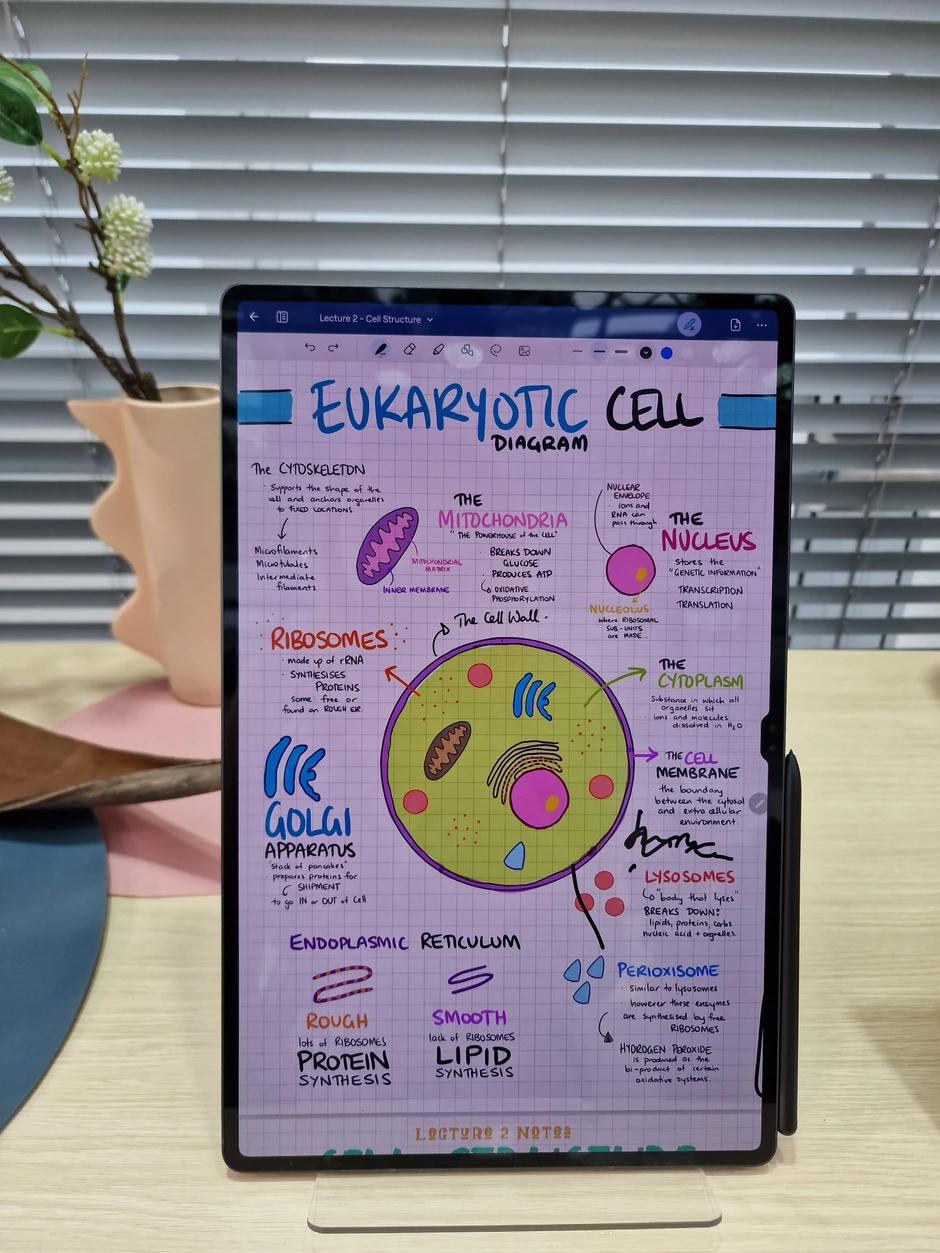 Lecture 2 - Cell Structure
EUKARYOTIC CELL
DIAGRAM
The CYTOSKELETON
· Supports the shape of the
cell and anchors organelles
to FIXED LOCATIONS
Microfilaments
Microtubules
Intermediate
filaments
THE
MITOCHONDRIA
"THE POWERHOUSE of the CELL"
MITOCHONDRIAL
MATRIX
INNER MEMBRANE
· BREAKS DOWN
GLUCOSE
PRODUCES ATP
OXIDATIVE
PHOSPHORYLATION
NUCLEAR
ENVELOPE
· ions and
RNA can
pass through
THE
NUCLEUS
stores the
"GENETIC INFORMATION"
· TRANSCRIPTION
TRANSLATION
NUCLEOLUS
where RIBOSOMAL
SUB-UNITS
are MADE
The Cell Wall.
RIBOSOMES
· made up of rRNA
· SYNTHESISES
PROTEINS
some free or
found on ROUGH ER.
THE
CYTOPLASM
Substance in which all
organelles sit
ions and molecules
dissolved in H₂O
THE CELL
MEMBRANE
the boundary
between the cytosol
and extracellular
environment.
GOLGI
APPARATUS
"stack of pancakes"
prepares proteins for
SHIPMENT
to go IN or OUT of Cell
LYSOSOMES
"body that lyses"
BREAKS DOWN:
lipids, proteins, carbs
nucleic acid + organelles.
ENDOPLASMIC RETICULUM
ROUGH
lots of RIBOSOMES
PROTEIN
SYNTHESIS
SMOOTH
lack of RIBOSOMES
LIPID
SYNTHESIS
PERIOXISOME
· similar to lysosomes
however these enzymes
are synthesised by free
RIBOSOMES
HYDROGEN PEROXIDE
is produced as the
bi-product of certain
oxidative systems.
LECTURE 2 NOTES
CELL STRUCTURE